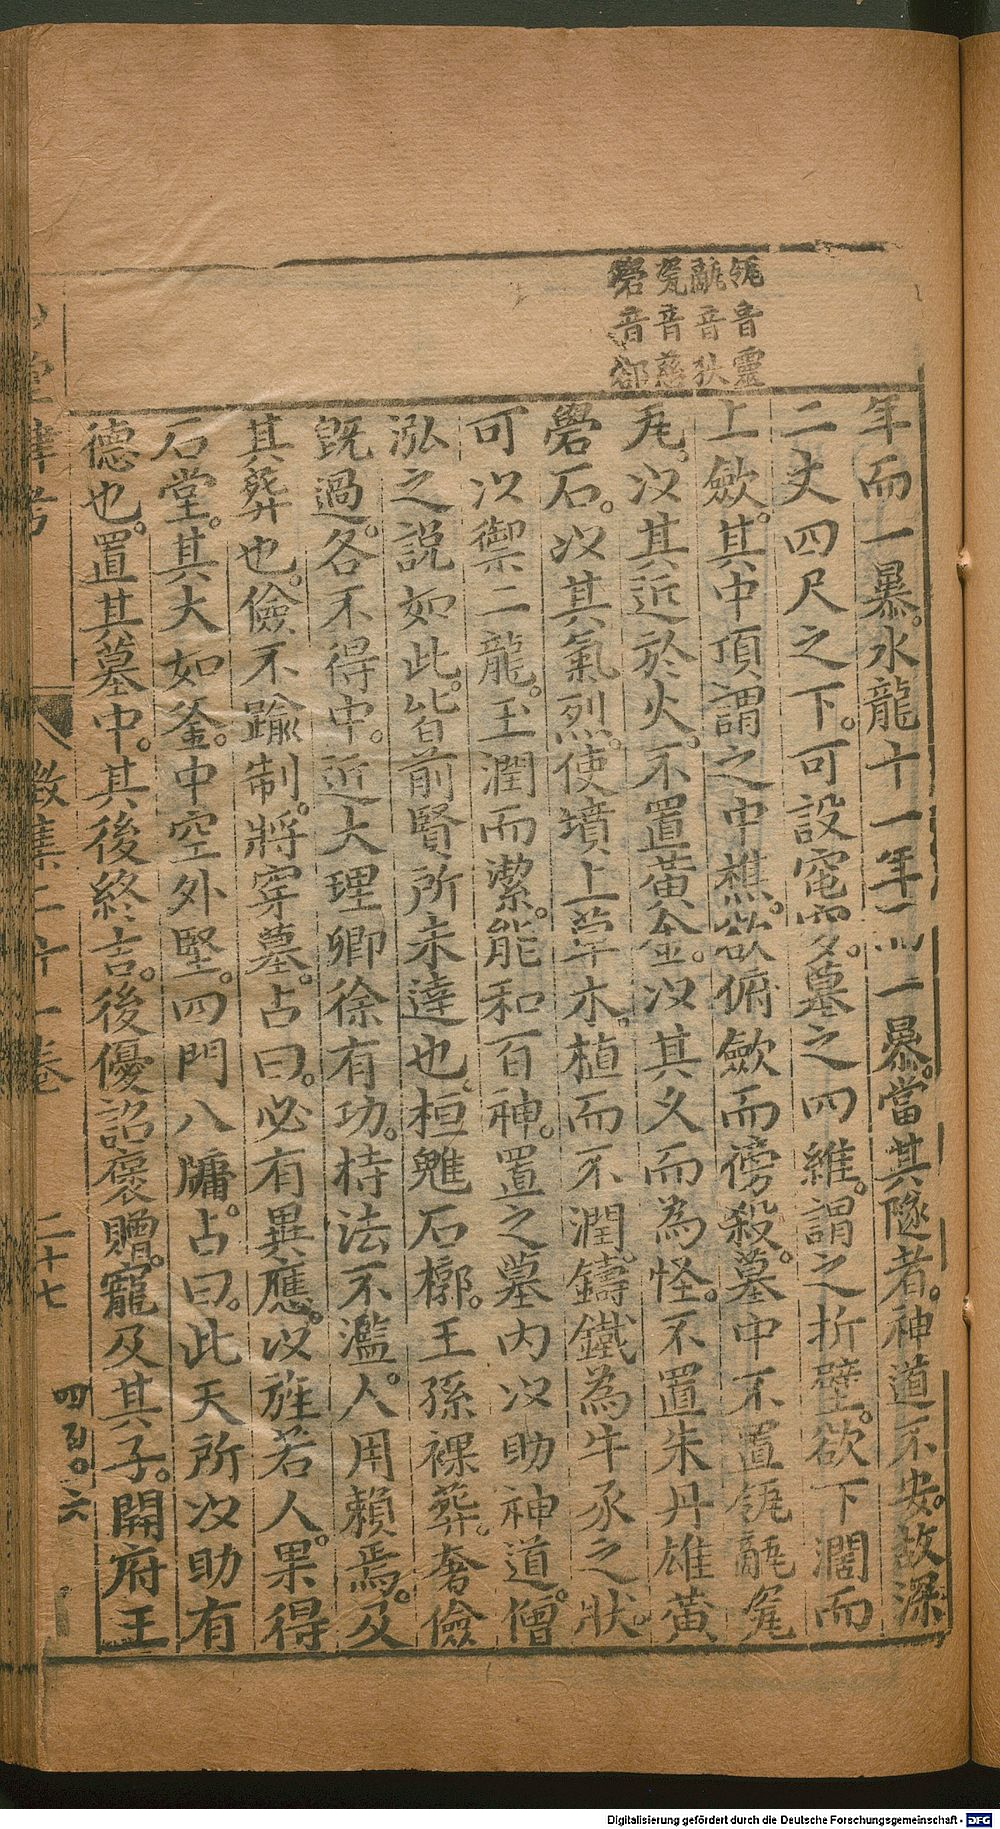 瓴音靈
㼽音狄
瓷音慈
礐音郤
年而一暴。水龍十一年二 一暴。當其隧者。神道不安。故深
二丈四尺之下。可設窀穸。墓之四維。謂之折壁。欲下濶而
上歛。其中頂謂之中樵。欲俯歛而傍殺。墓中不置瓴㼽瓷
瓦。以其近於火。不置黃金。以其久而為怪。不置朱丹雄黃
礐石。以其氣烈。使墳上草木。植而不潤。鑄鐵為牛豕之狀。
可以禦二龍。玉潤而潔。能和百神。置之墓內以助神道。僧
泓之說如此。皆前賢所未達也。桓魋石槨。王孫裸葬。奢儉
旣過。各不得中。近大理卿徐有功。持法不濫。人用賴焉。及
其葬也。儉不踰制。將穿墓。占曰。必有異應。以旌若人。果得
石堂。其大如釜。中空外堅。四門八牖。占曰。此天所以助有
德也。置其墓中。其後終吉。後優詔褒贈。寵及其子。開府王
山堂肆考
徵集二十一卷
二十七
四百。六
Digitalisierung gefördert durch die Deutsche Forschungsgemeinschaft - DFG